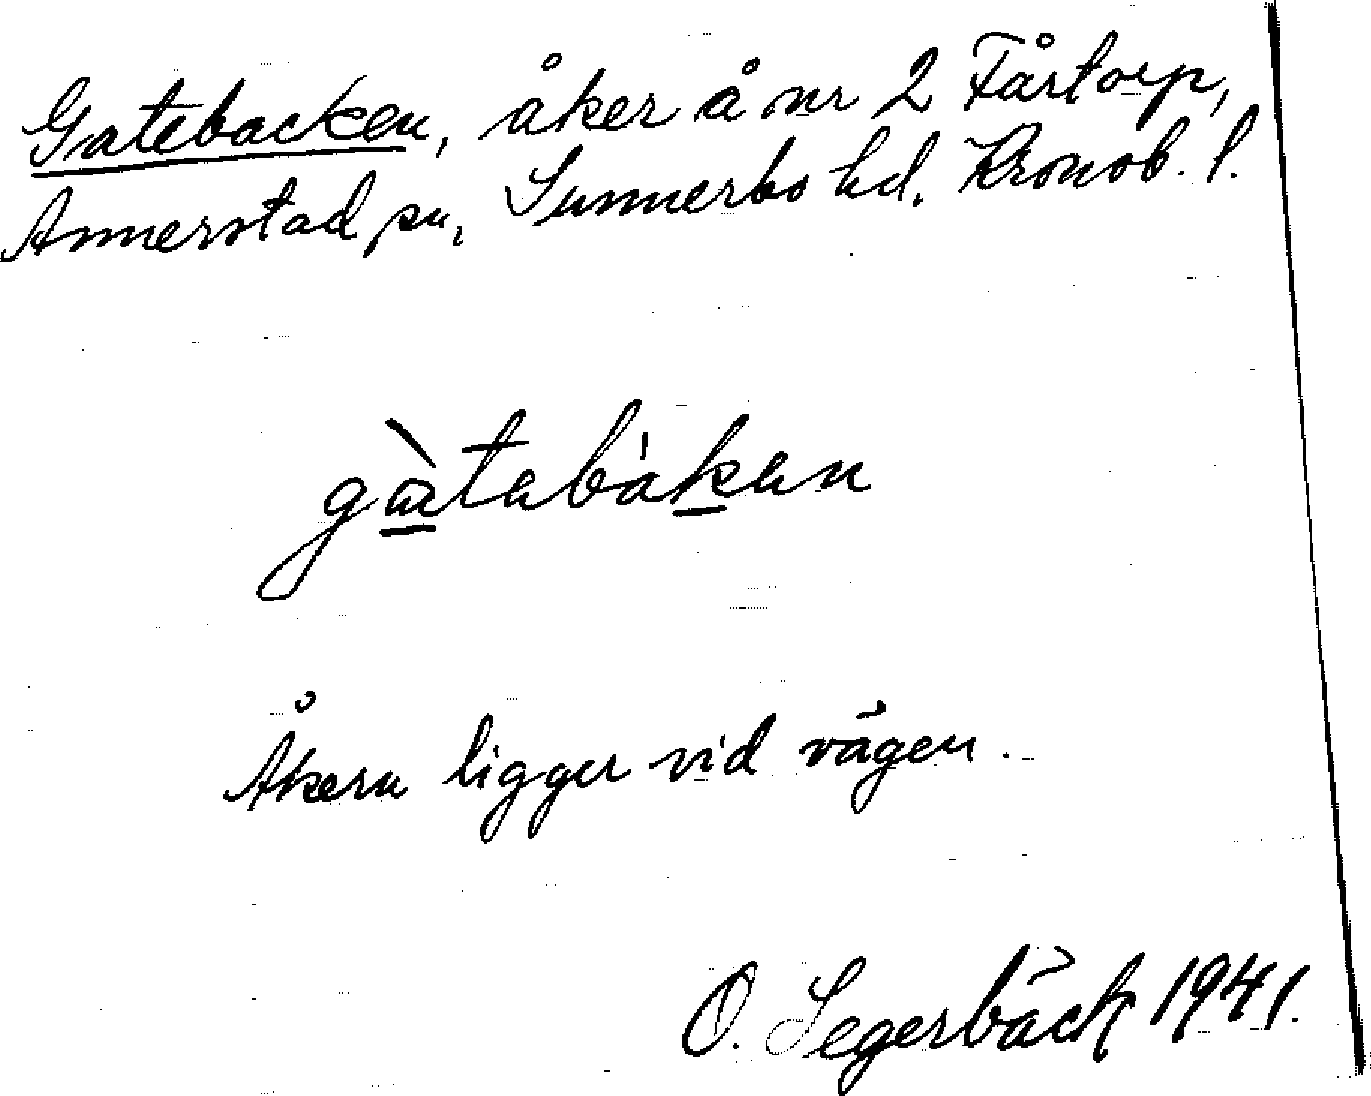 Gatebacken, åker å nr 2 Fårtorp,
Annerstad sn, Sunnerbo hd. Kronob. l.
gàtabákan
Åkern ligger vid vägen.
O. Segerbäck 1941.